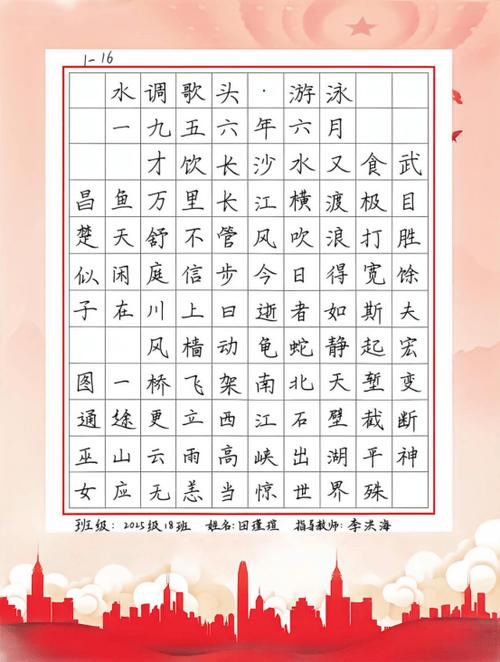 1-16
水调歌头·游泳
一九五六年六月
才饮长沙水又食武
昌鱼万里长江横渡极目
楚天舒不管风吹浪打胜
似闲庭信步今日得宽馀
子在川上曰逝者如斯夫
风樯动龟蛇静起宏
图一桥飞架南北天堑变
通途更立西江石壁截断
巫山云雨高峡出湖平神
女应无恙当惊世界殊
班级：2025级18班 姓名：田瑾瑄 指导教师：李洪海